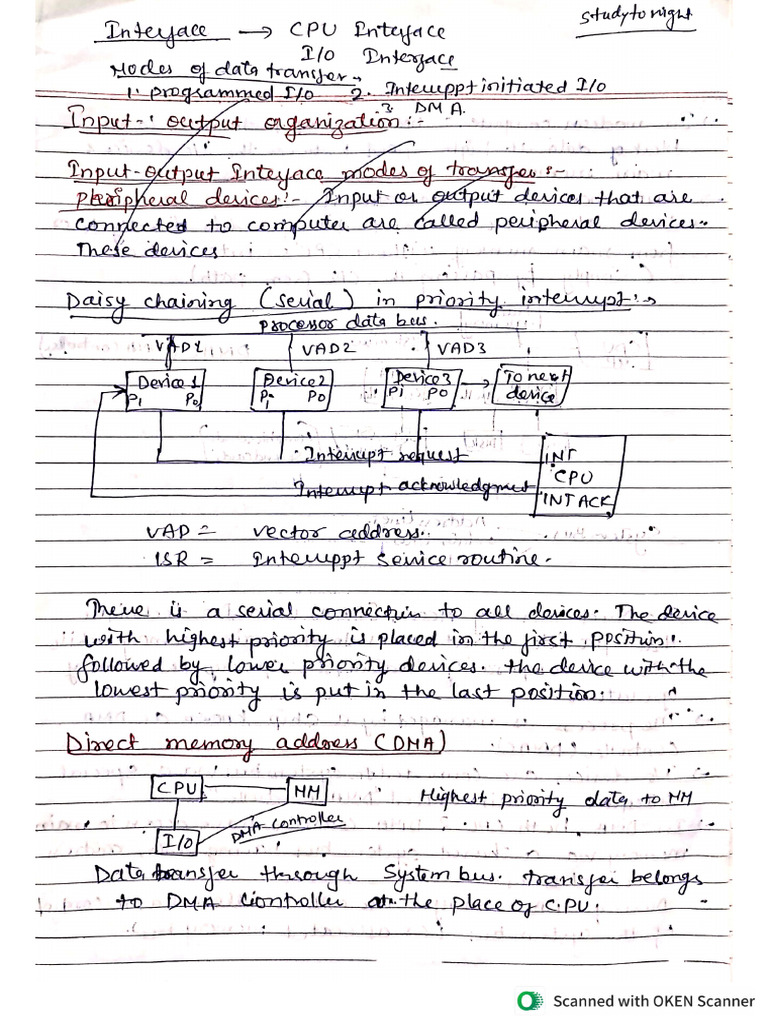 Interface → CPU Interface
studytonight
I/O Interface
Modes of data transfer →
1. programmed I/O 2. Interruppt initiated I/O
3 DMA.
Input-output organization :-
Input-output Interface modes of transfer :-
peripheral devices :- Input or output devices that are
connected to computer are called peripheral devices.
These devices
Daisy chaining (serial) in priority interrupt :→
processor data bus.
VAD1 VAD2 VAD3
Device 1 Device 2 Device 3 → To next
PI PO PI PO PI PO device
Interrupt request INT
CPU
Interrupt acknowledgment INT ACK
VAD = vector address.
ISR = Interruppt service routine.
There is a serial connection to all devices. The device
with highest priority is placed in the first position.
followed by lower priority devices. the device with the
lowest priority is put in the last position.
Direct memory address (DMA)
CPU MM Highest priority data to MM
DMA controller
I/O
Data transfer through System bus. transfer belongs
to DMA Controller at the place of CPU.
Scanned with OKEN Scanner